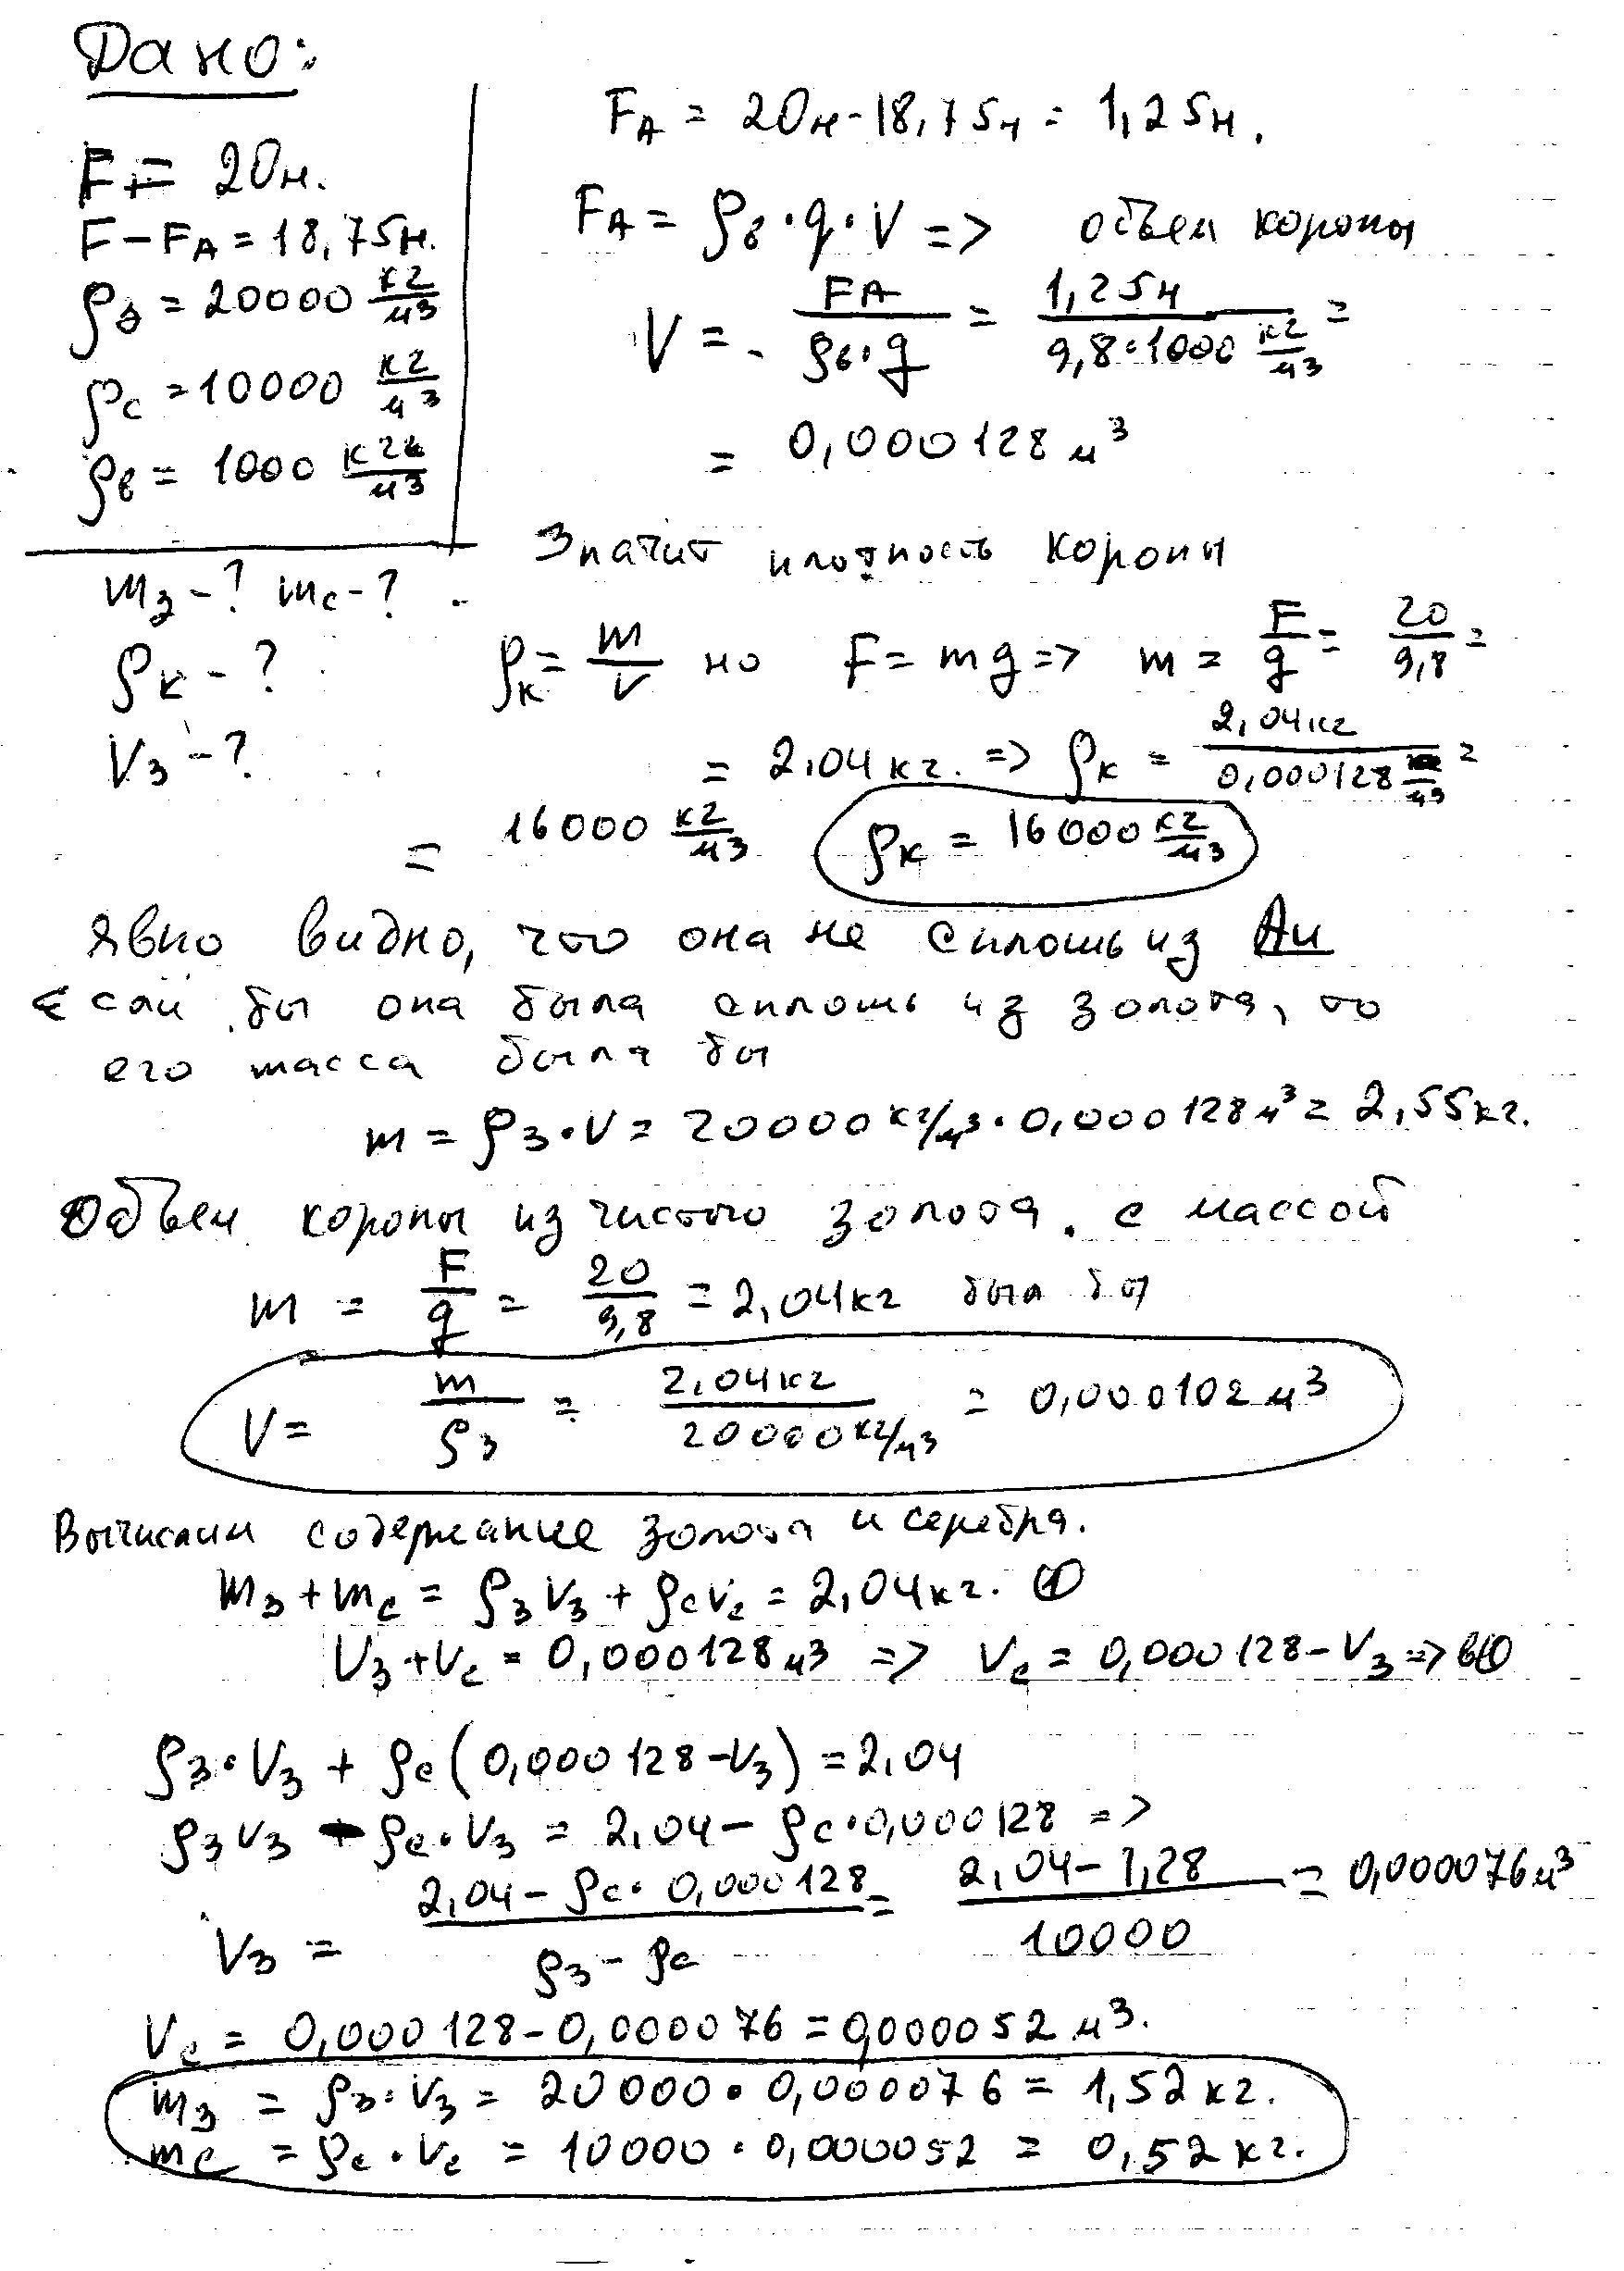 Дано:
F = 20н.
F - FA = 18,75н.
ρз = 20000 кг/м3
ρс = 10000 кг/м3
ρв = 1000 кг/м3
mз - ? mс - ?
ρк - ?
Vз - ?
FA = 20н - 18,75н = 1,25н.
FA = ρв · g · V => объем короны
V = FA/ρв·g = 1,25н/9,8·1000 кг/м3 =
= 0,000128 м³
Значит плотность короны
ρк = m/V но F = mg => m = F/g = 20/9,8 =
= 2,04кг. => ρк = 2,04кг/0,000128 м3 =
= 16000 кг/м3 ρк = 16000 кг/м3
Явно видно, что она не сплошь из Au
Если бы она была сплошь из золота, то
его масса была бы
m = ρз · V = 20000 кг/м3 · 0,000128 м³ = 2,55кг.
Объем короны из чистого золота. с массой
m = F/g = 20/9,8 = 2,04кг был бы
V = m/ρз = 2,04кг/20000 кг/м3 = 0,000102 м³
Вычислим содержание золота и серебра.
mз + mс = ρзVз + ρсVс = 2,04кг. ①
Vз + Vс = 0,000128 м3 => Vс = 0,000128 - Vз => в ①
ρз · Vз + ρс (0,000128 - Vз) = 2,04
ρзVз - ρс · Vз = 2,04 - ρс · 0,000128 =>
Vз = 2,04 - ρс · 0,000128/ρз - ρс = 2,04 - 1,28/10000 = 0,000076 м³
Vс = 0,000128 - 0,000076 = 0,000052 м³.
mз = ρз · Vз = 20000 · 0,000076 = 1,52 кг.
mс = ρс · Vс = 10000 · 0,000052 = 0,52 кг.